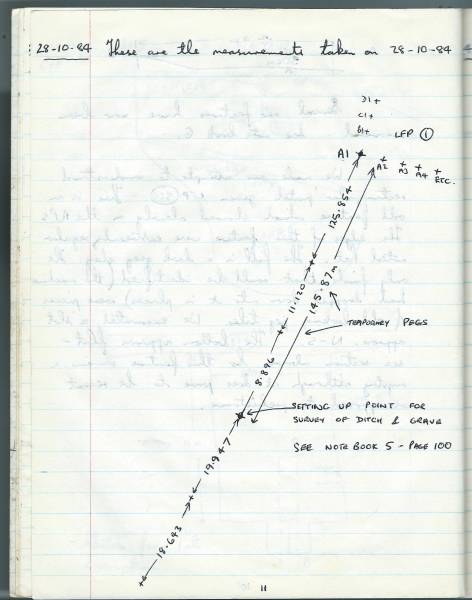 28-10-84 These are the measurements taken on 28-10-84
D1+
C1+
B1+
LFP ①
A1
A2 A3 A4 ETC.
125.854
145.87m
11.120
TEMPORARY PEGS
8.896
SETTING UP POINT FOR
SURVEY OF DITCH & GRAVE
SEE NOTE BOOK 5 - PAGE 100
19.947
18.643
11